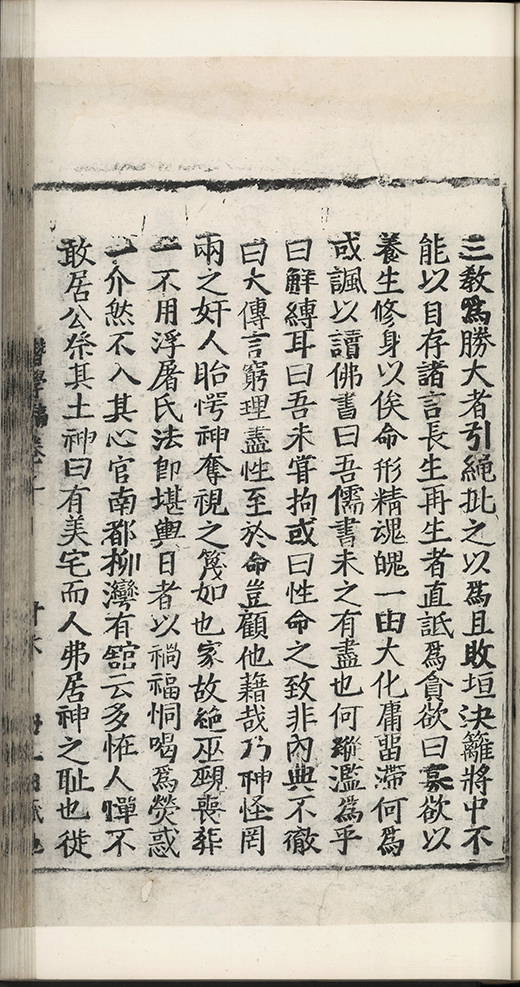 三教爲勝大者引繩批之以爲且敗垣決籬將中不
能以自存諸言長生再生者直詆爲貪欲曰寡欲以
養生修身以俟命形精魂魄一由大化庸畱滯何爲
或諷以讀佛書曰吾儒書未之有盡也何蹤濫爲乎
曰解縛耳曰吾未甞拘或曰性命之致非內典不徹
曰大傳言窮理盡性至於命豈顧他藉哉乃神怪罔
兩之奸人眙愕神奪視之篾如也家故絶巫覡喪葬
一不用浮屠氏法卽堪輿日者以禍福恫喝爲熒惑
一介然不入其心官南都柳灣有舘云多恠人憚不
敢居公祭其土神曰有美宅而人弗居神之耻也徙